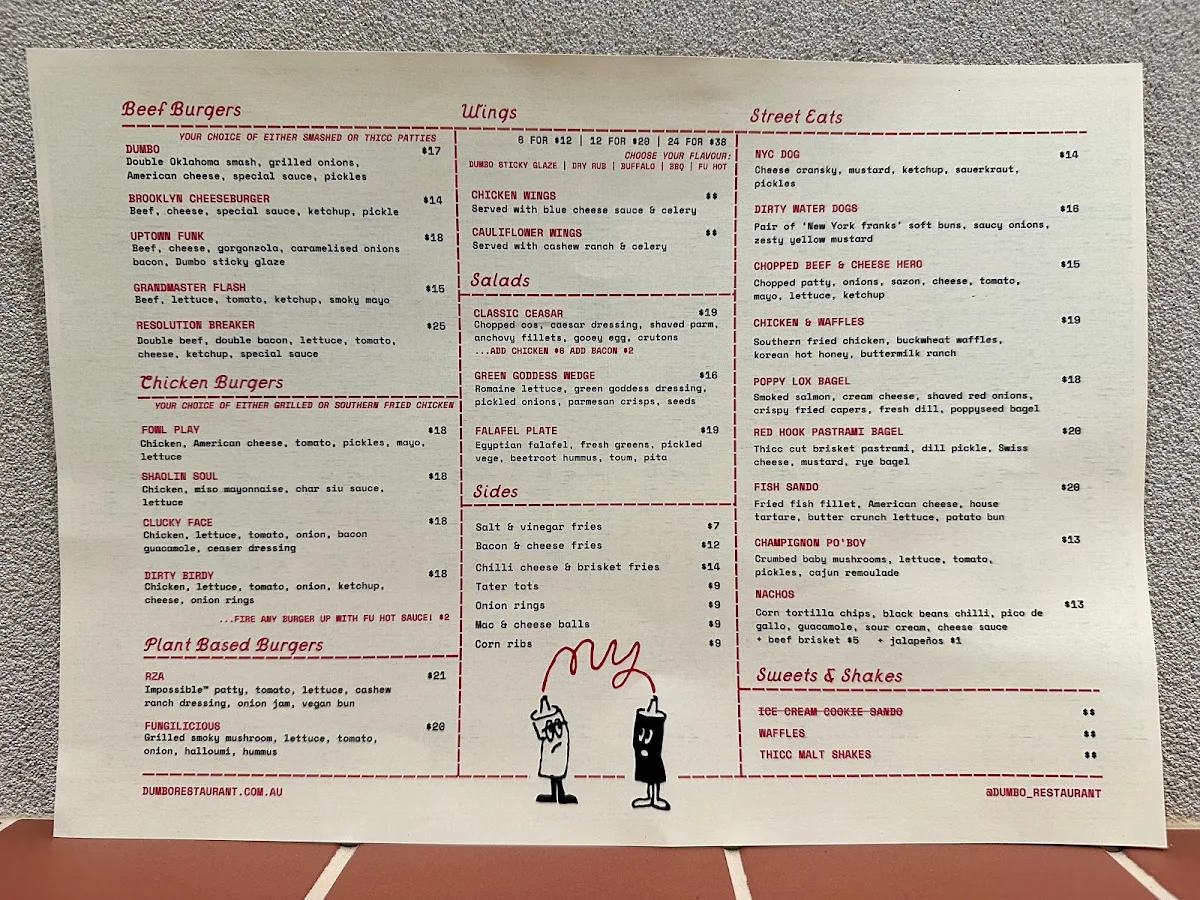 Beef Burgers
YOUR CHOICE OF EITHER SMASHED OR THICC PATTIES
DUMBO $17
Double Oklahoma smash, grilled onions,
American cheese, special sauce, pickles
BROOKLYN CHEESEBURGER $14
Beef, cheese, special sauce, ketchup, pickle
UPTOWN FUNK $18
Beef, cheese, gorgonzola, caramelised onions
bacon, Dumbo sticky glaze
GRANDMASTER FLASH $15
Beef, lettuce, tomato, ketchup, smoky mayo
RESOLUTION BREAKER $25
Double beef, double bacon, lettuce, tomato,
cheese, ketchup, special sauce
Chicken Burgers
YOUR CHOICE OF EITHER GRILLED OR SOUTHERN FRIED CHICKEN
FOWL PLAY $18
Chicken, American cheese, tomato, pickles, mayo,
lettuce
SHAOLIN SOUL $18
Chicken, miso mayonnaise, char siu sauce,
lettuce
CLUCKY FACE $18
Chicken, lettuce, tomato, onion, bacon
guacamole, ceaser dressing
DIRTY BIRDY $18
Chicken, lettuce, tomato, onion, ketchup,
cheese, onion rings
...FIRE ANY BURGER UP WITH FU HOT SAUCE! $2
Plant Based Burgers
RZA $21
Impossible™ patty, tomato, lettuce, cashew
ranch dressing, onion jam, vegan bun
FUNGILICIOUS $20
Grilled smoky mushroom, lettuce, tomato,
onion, halloumi, hummus
DUMBORESTAURANT.COM.AU
Wings
6 FOR $12 | 12 FOR $20 | 24 FOR $38
CHOOSE YOUR FLAVOUR:
DUMBO STICKY GLAZE | DRY RUB | BUFFALO | BBQ | FU HOT
CHICKEN WINGS $$
Served with blue cheese sauce & celery
CAULIFLOWER WINGS $$
Served with cashew ranch & celery
Salads
CLASSIC CEASAR $19
Chopped cos, caesar dressing, shaved parm,
anchovy fillets, gooey egg, crutons
...ADD CHICKEN $6 ADD BACON $2
GREEN GODDESS WEDGE $16
Romaine lettuce, green goddess dressing,
pickled onions, parmesan crisps, seeds
FALAFEL PLATE $19
Egyptian falafel, fresh greens, pickled
vege, beetroot hummus, toum, pita
Sides
Salt & vinegar fries $7
Bacon & cheese fries $12
Chilli cheese & brisket fries $14
Tater tots $9
Onion rings $9
Mac & cheese balls $9
Corn ribs $9
ny
Street Eats
NYC DOG $14
Cheese cransky, mustard, ketchup, sauerkraut,
pickles
DIRTY WATER DOGS $16
Pair of 'New York franks' soft buns, saucy onions,
zesty yellow mustard
CHOPPED BEEF & CHEESE HERO $15
Chopped patty, onions, sazon, cheese, tomato,
mayo, lettuce, ketchup
CHICKEN & WAFFLES $19
Southern fried chicken, buckwheat waffles,
korean hot honey, buttermilk ranch
POPPY LOX BAGEL $18
Smoked salmon, cream cheese, shaved red onions,
crispy fried capers, fresh dill, poppyseed bagel
RED HOOK PASTRAMI BAGEL $20
Thicc cut brisket pastrami, dill pickle, Swiss
cheese, mustard, rye bagel
FISH SANDO $20
Fried fish fillet, American cheese, house
tartare, butter crunch lettuce, potato bun
CHAMPIGNON PO'BOY $13
Crumbed baby mushrooms, lettuce, tomato,
pickles, cajun remoulade
NACHOS $13
Corn tortilla chips, black beans chilli, pico de
gallo, guacamole, sour cream, cheese sauce
+ beef brisket $5 + jalapeños $1
Sweets & Shakes
ICE CREAM COOKIE SANDO $$
WAFFLES $$
THICC MALT SHAKES $$
@DUMBO_RESTAURANT